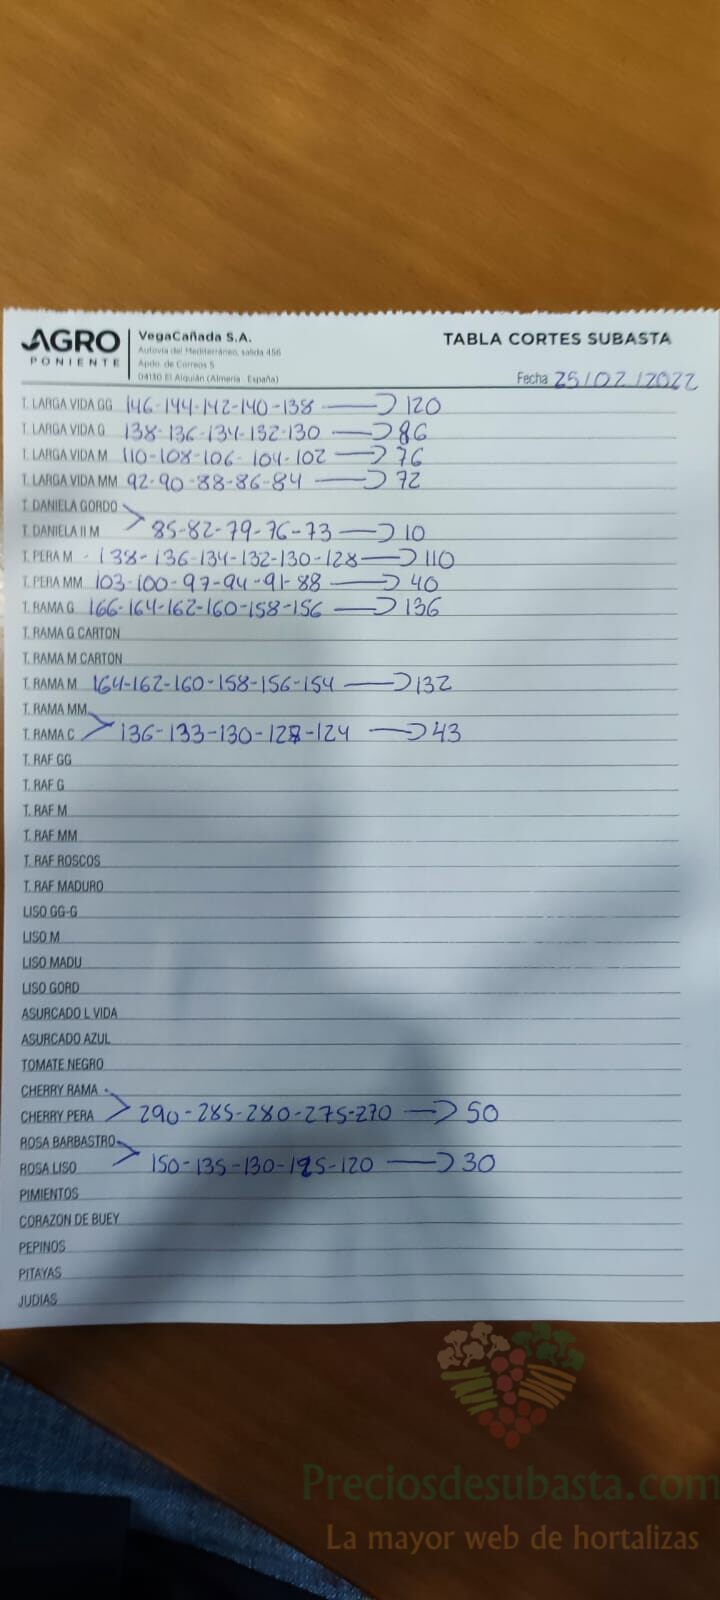 AGRO
PONIENTE
VegaCañada S.A.
Autovía del Mediterráneo, salida 456
Apdo. de Correos 5
04130 El Alquián (Almería - España)
TABLA CORTES SUBASTA
Fecha 25/02/2022
T. LARGA VIDA GG 146-144-142-140-138 → 120
T. LARGA VIDA G 138-136-134-132-130 → 86
T. LARGA VIDA M 110-108-106-104-102 → 76
T. LARGA VIDA MM 92-90-88-86-84 → 72
T. DANIELA GORDO
T. DANIELA II M 85-82-79-76-73 → 10
T. PERA M - 138-136-134-132-130-128 → 110
T. PERA MM 103-100-97-94-91-88 → 40
T. RAMA G 166-164-162-160-158-156 → 136
T. RAMA G CARTON
T. RAMA M CARTON
T. RAMA M 164-162-160-158-156-154 → 132
T. RAMA MM
T. RAMA C 136-133-130-127-124 → 43
T. RAF GG
T. RAF G
T. RAF M
T. RAF MM
T. RAF ROSCOS
T. RAF MADURO
LISO GG-G
LISO M
LISO MADU
LISO GORD
ASURCADO L VIDA
ASURCADO AZUL
TOMATE NEGRO
CHERRY RAMA
CHERRY PERA 290-285-280-275-270 → 50
ROSA BARBASTRO
ROSA LISO 150-135-130-125-120 → 30
PIMIENTOS
CORAZON DE BUEY
PEPINOS
PITAYAS
JUDIAS
Preciosdesubasta.com
La mayor web de hortalizas